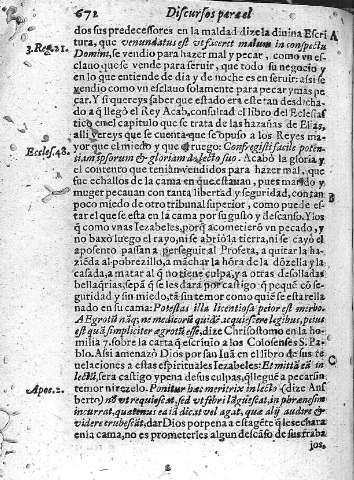 672 Discursos para el
dos sus predecessores en la maldad dize la diuina Escri
tura, que venundatus est vt faceret malum in conspectu
3. Reg. 21.
Domini, se vendio para hazer mal y pecar, como vn es-
clauo que se vende para seruir, que todo su negocio y
en lo que entiende de dia y de noche es en seruir: assi se
vendio como vn esclauo solamente para pecar y mas pe
car. Y si quereys saber que estado era este tan desdicha-
do a q̃ llegò el Rey Acab, consultad el libro del Eclesias
tico en el capitulo que se trata de las hazañas de Elias,
alli vereys que se cuenta que se opuso a los Reyes ma-
yor que el miedo y que el ruego: Confregisti facile poten-
Eccles. 48.
tiam ipsorum & gloriam de lecto suo. Acabò la gloria y
el contento que tenian vendidos para hazer mal, que
fue echallos de la cama en que estauan, pues marido y
muger pecauan con tanta libertad y seguridad, con tan
B
poco miedo de otro tribunal superior, como puede es-
tar el que se esta en la cama por su gusto y descanso. Y los
q̃ como vnas Iezabeles, porq̃ acometierõ vn pecado, y
no baxò luego el rayo, ni se abriò la tierra, ni se cayò el
aposento passan a perseguir al Profeta, a quitar la ha-
ziẽda al pobrezillo, a mãchar la hõra de la dõzella y la
casada, a matar al q̃ no tiene culpa, y a otras desolladas
bellaq̃rias, sepã q̃ se les darà por castigo q̃ pequẽ cõ se-
guridad y sin miedo, tã sin temor como quiẽ se esta rella
nado en su cama: Potestas illa licentiosa peior est morbo.
Aegroti nãq; ne medicorũ quidẽ acquiescere legibus, peius
est quã simpliciter agrotũ esse, dize Chrisostomo en la ho
C
milia 7. sobre la carta que escriuio a los Colosenses S. Pa-
blo. Assi amenazò Dios por san Iuã en el libro de sus re
uelaciones a estas espirituales Iezabeles: Et mittã eã in
Apoc. 2.
lectũ, sera castigo y pena de sus culpas, q̃ llegue a pecar sin
temor ni rezelo. Ponitur hac meretrix in lecto (dize Ans
berto) nõ vt requiescat, sed vt febri lãguescat, in phrænesim
incurrat, quatenus ea iã dicat vel agat, quæ alij audire &
videre erubescãt, dar Dios por pena a esta gẽte q̃ les echara
en la cama, no es prometerles algun descãso de sus traba
jos,